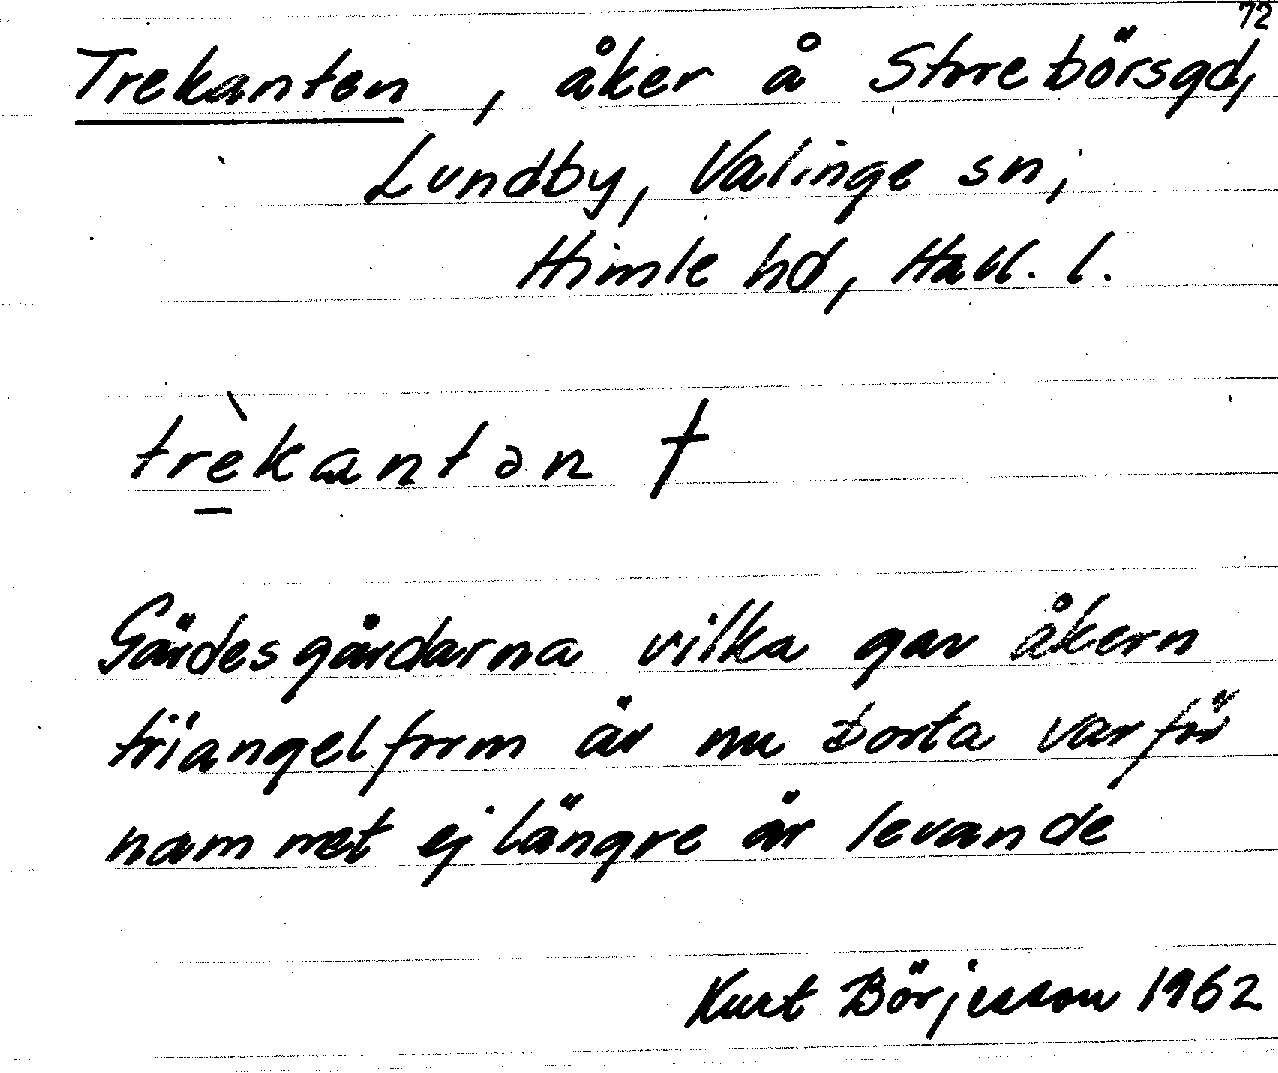 72
Trekanten, åker å Storebörsgd,
Lundby, Valinge sn,
Himle hd, Hall. l.
trèkantən †
Gärdesgårdarna vilka gav åkern
triangelform är nu borta varför
namnet ej längre är levande
Kurt Börjesson 1962